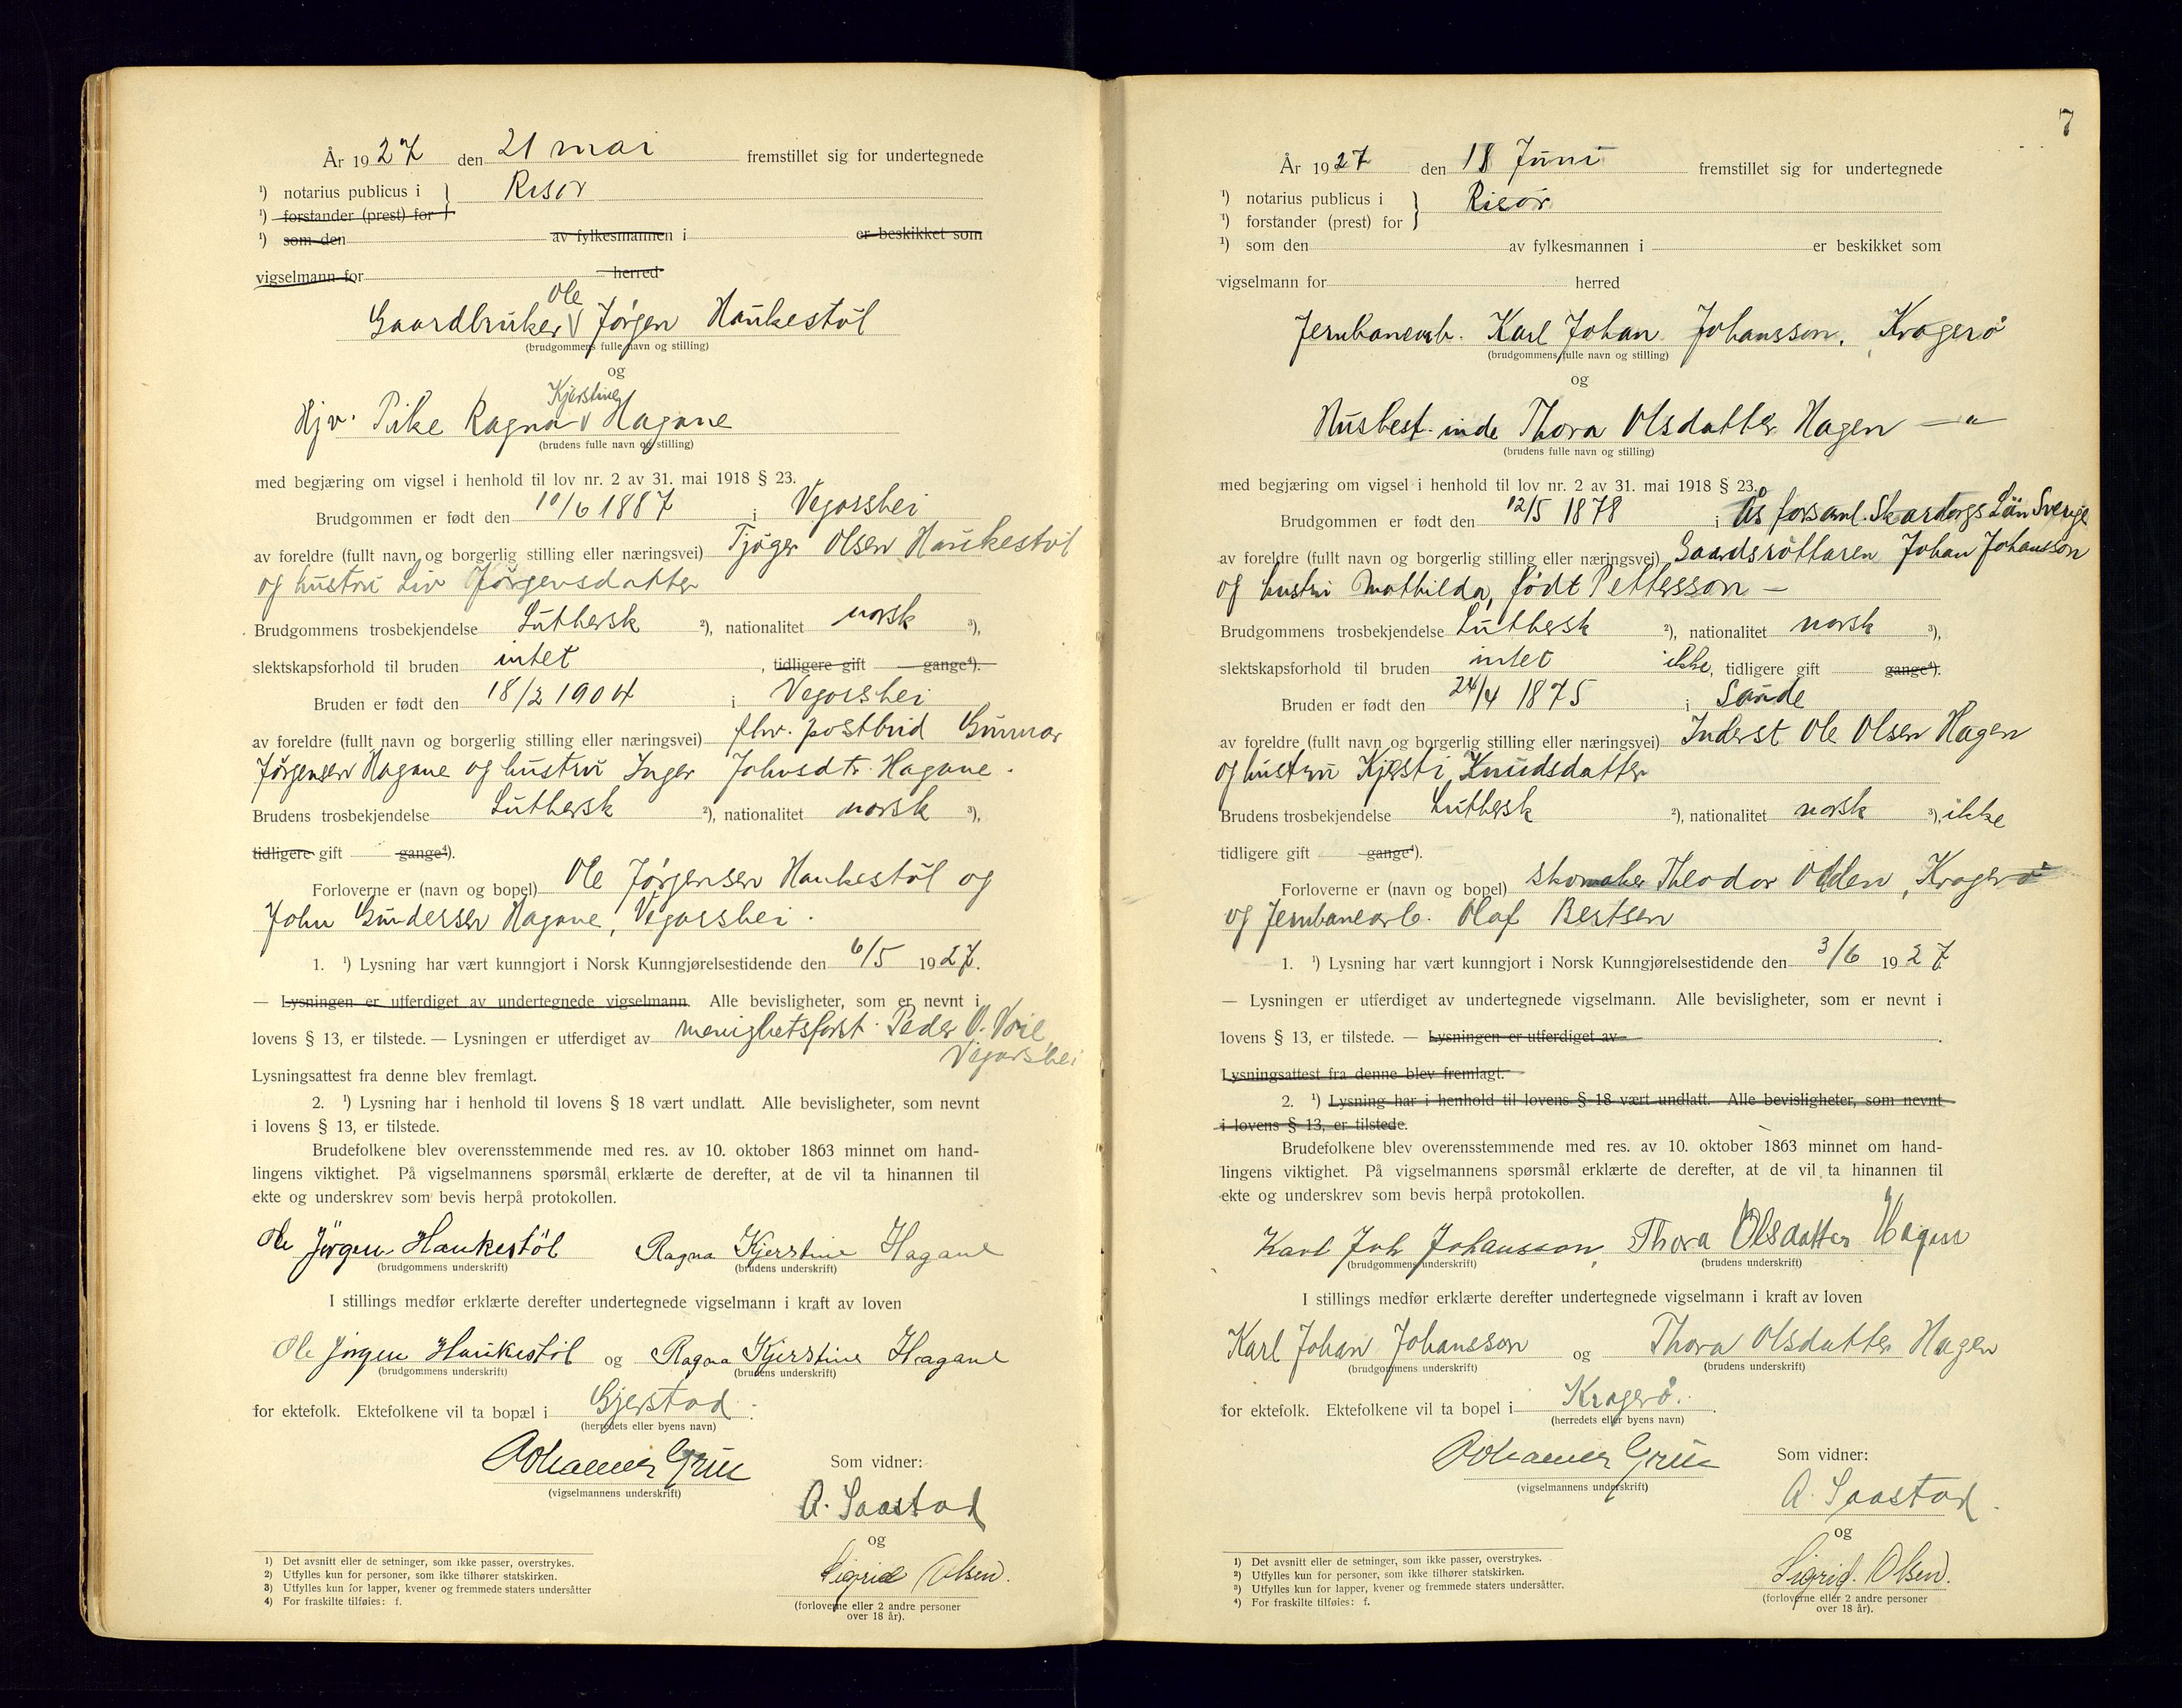 År 1927 den 21 mai fremstillet sig for undertegnede
¹) notarius publicus i } Risør
¹) forstander (prest) for
¹) som den av fylkesmannen i er beskikket som
vigselmann for herred
Ole
Gaardbruker V Jørgen Haukestøl
(brudgommens fulle navn og stilling)
og
Kjerstine
Hjv. Pike Ragna V Hagane
(brudens fulle navn og stilling)
med begjæring om vigsel i henhold til lov nr. 2 av 31. mai 1918 § 23.
Brudgommen er født den 10/6 1887 i Vegosshei
av foreldre (fullt navn og borgerlig stilling eller næringsvei) Tjøger Olsen Haukestøl
og hustru Liv Jørgensdatter
Brudgommens trosbekjendelse Luthersk ²), nationalitet norsk ³),
slektskapsforhold til bruden intet, tidligere gift gange⁴).
Bruden er født den 18/2 1904 i Vegosshei
av foreldre (fullt navn og borgerlig stilling eller næringsvei) fhv. postbud Gunnar
Jørgensen Hagane og hustru Inger Johnsdtr. Hagane.
Brudens trosbekjendelse Luthersk ²), nationalitet norsk ³),
tidligere gift gange⁴).
Forloverne er (navn og bopel) Ole Jørgensen Haukestøl og
John Gundersen Hagane, Vegosshei.
1. ¹) Lysning har vært kunngjort i Norsk Kunngjørelsestidende den 6/5 1927.
— Lysningen er utferdiget av undertegnede vigselmann. Alle bevisligheter, som er nevnt i
lovens § 13, er tilstede. — Lysningen er utferdiget av menighetsforst. Peder O. Voie
Vegorshei
Lysningsattest fra denne blev fremlagt.
2. ¹) Lysning har i henhold til lovens § 18 vært undlatt. Alle bevisligheter, som nevnt
i lovens § 13, er tilstede.
Brudefolkene blev overensstemmende med res. av 10. oktober 1863 minnet om hand-
lingens viktighet. På vigselmannens spørsmål erklærte de derefter, at de vil ta hinannen til
ekte og underskrev som bevis herpå protokollen.
Ole Jörgen Haukestøl Ragna Kjerstine Hagane
(brudgommens underskrift) (brudens underskrift)
I stillings medfør erklærte derefter undertegnede vigselmann i kraft av loven
Ole Jørgen Haukestøl og Ragna Kjerstine Hagane
(brudgommens underskrift) (brudens underskrift)
for ektefolk. Ektefolkene vil ta bopæl i Gjerstad.
(herredets eller byens navn)
Johannes Grue Som vidner:
(vigselmannens underskrift)
A. Saastad
og
Sigrid Olsen.
(forloverne eller 2 andre personer
over 18 år).
1) Det avsnitt eller de setninger, som ikke passer, overstrykes.
2) Utfylles kun for personer, som ikke tilhører statskirken.
3) Utfylles kun for lapper, kvener og fremmede staters undersåtter
4) For fraskilte tilføies: f.
7
År 1927 den 18 Juni fremstillet sig for undertegnede
¹) notarius publicus i } Risør
¹) forstander (prest) for
¹) som den av fylkesmannen i er beskikket som
vigselmann for herred
Jernbanearb. Karl Johan Johansson, Kragerø
(brudgommens fulle navn og stilling)
og
Husbest.inde Thora Olsdatter Hagen —"—
(brudens fulle navn og stilling)
med begjæring om vigsel i henhold til lov nr. 2 av 31. mai 1918 § 23.
Brudgommen er født den 12/5 1878 i Ås forsaml. Skaraborgs Län Sverige
av foreldre (fullt navn og borgerlig stilling eller næringsvei) Gaardsröttaren Johan Johansson
og hustru Mathilda, født Pettersson —
Brudgommens trosbekjendelse Luthersk ²), nationalitet norsk ³),
slektskapsforhold til bruden intet ikke, tidligere gift gange⁴).
Bruden er født den 24/4 1875 i Saude
av foreldre (fullt navn og borgerlig stilling eller næringsvei) Inderst Ole Olsen Hagen
og hustru Kjersti Knudsdatter
Brudens trosbekjendelse Luthersk ²), nationalitet norsk ³), ikke
tidligere gift gange⁴).
Forloverne er (navn og bopel) skomaker Theodor Olden, Kragerø
og Jernbanearb. Olaf Bertsen
1. ¹) Lysning har vært kunngjort i Norsk Kunngjørelsestidende den 3/6 1927
— Lysningen er utferdiget av undertegnede vigselmann. Alle bevisligheter, som er nevnt i
lovens § 13, er tilstede. — Lysningen er utferdiget av .
Lysningsattest fra denne blev fremlagt.
2. ¹) Lysning har i henhold til lovens § 18 vært undlatt. Alle bevisligheter, som nevnt
i lovens § 13, er tilstede.
Brudefolkene blev overensstemmende med res. av 10. oktober 1863 minnet om hand-
lingens viktighet. På vigselmannens spørsmål erklærte de derefter, at de vil ta hinannen til
ekte og underskrev som bevis herpå protokollen.
Karl Joh Johansson, Thora Olsdatter Hagen
(brudgommens underskrift) (brudens underskrift)
I stillings medfør erklærte derefter undertegnede vigselmann i kraft av loven
Karl Johan Johansson og Thora Olsdatter Hagen
(brudgommens underskrift) (brudens underskrift)
for ektefolk. Ektefolkene vil ta bopel i Kragerø.
(herredets eller byens navn)
Johannes Grue Som vidner:
(vigselmannens underskrift)
A. Saastad.
og
Sigrid. Olsen.
(forloverne eller 2 andre personer
over 18 år).
1) Det avsnitt eller de setninger, som ikke passer, overstrykes.
2) Utfylles kun for personer, som ikke tilhører statskirken.
3) Utfylles kun for lapper, kvener og fremmede staters undersåtter.
4) For fraskilte tilføies: f.